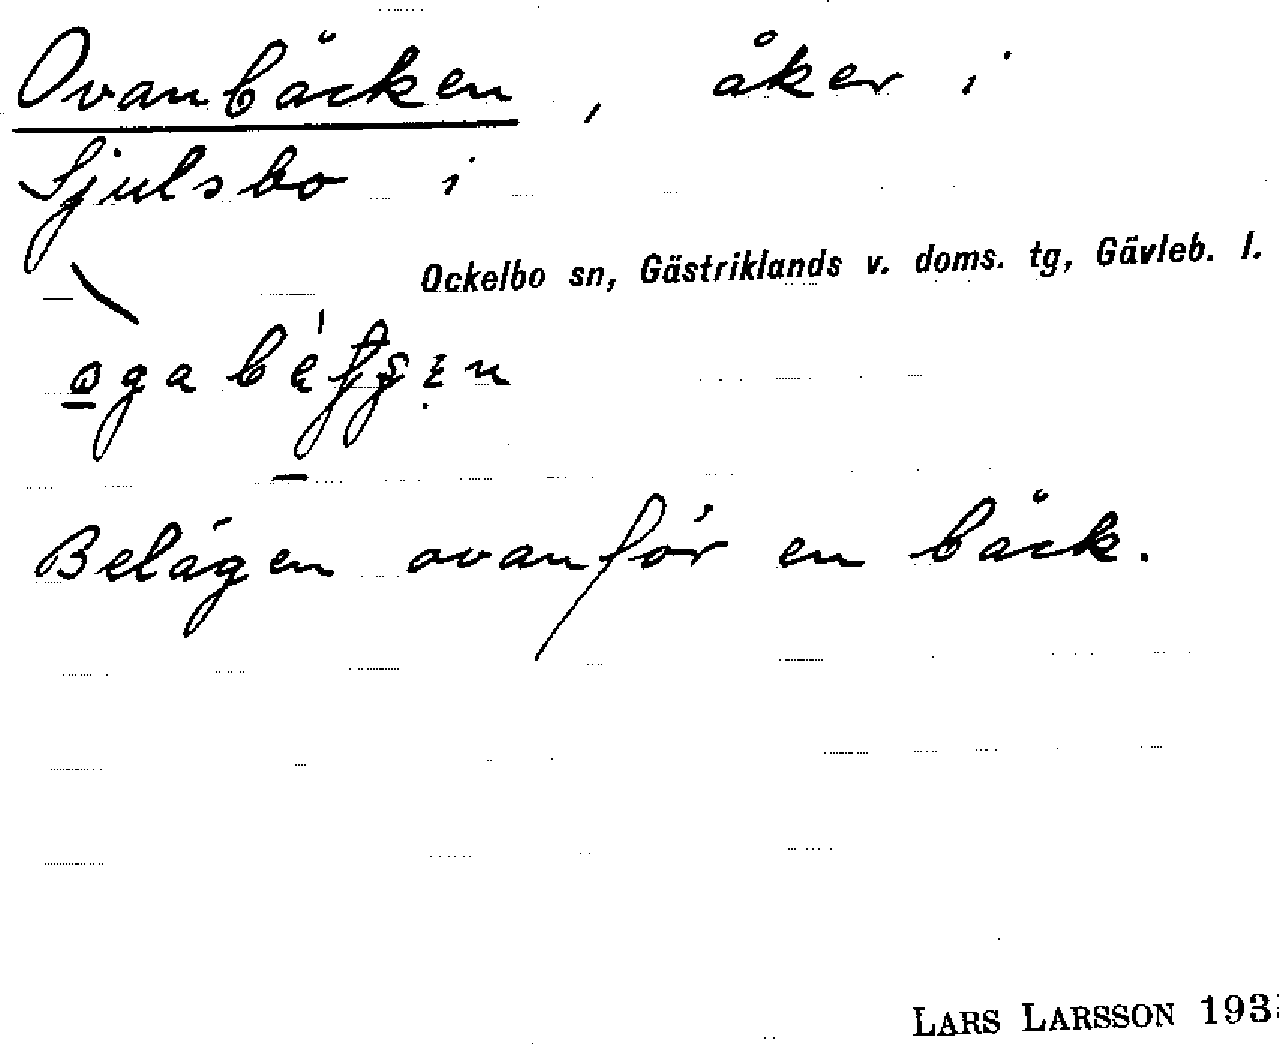 Ovanbäcken, åker i
Sjulsbo i
Ockelbo sn, Gästriklands v. doms. tg, Gävleb. l.
Belägen ovanför en bäck.
LARS LARSSON 193